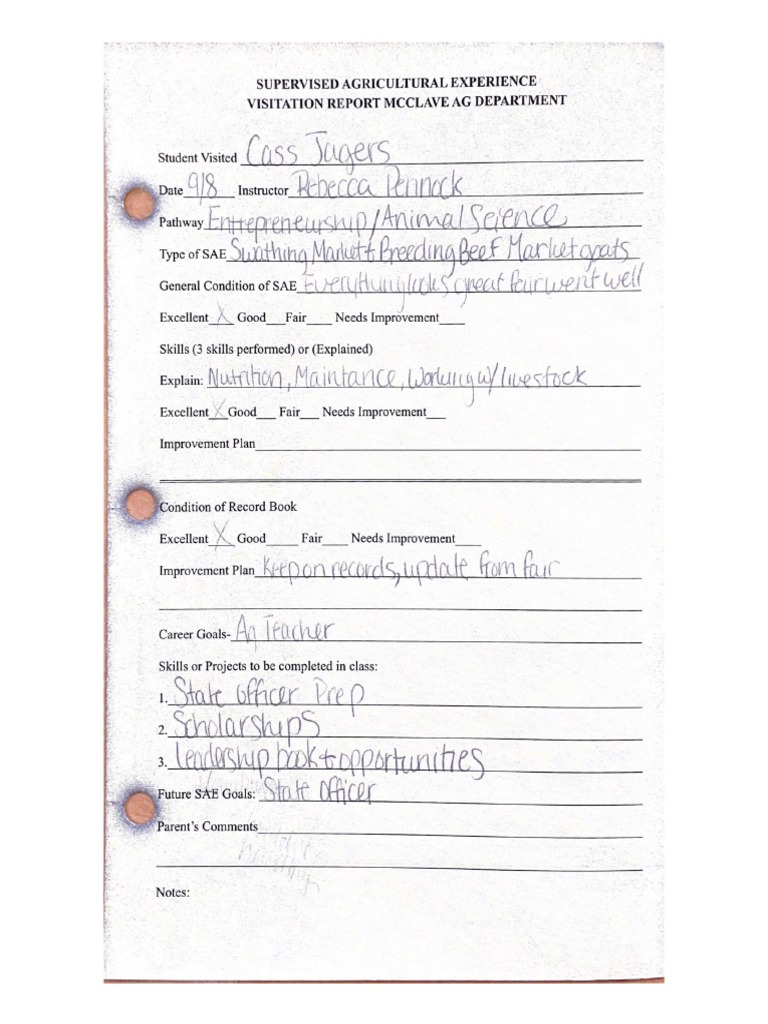 SUPERVISED AGRICULTURAL EXPERIENCE
VISITATION REPORT MCCLAVE AG DEPARTMENT
Student Visited Cass Jagers
Date 9/8 Instructor Rebecca Pennock
Pathway Entrepreneurship/Animal Science
Type of SAE Swathing Market + Breeding Beef Market goats
General Condition of SAE Everything looks great fair went well
Excellent X Good Fair Needs Improvement
Skills (3 skills performed) or (Explained)
Explain: Nutrition, Maintance, Working w/ livestock
Excellent X Good Fair Needs Improvement
Improvement Plan
Condition of Record Book
Excellent X Good Fair Needs Improvement
Improvement Plan Keep on records, update from fair
Career Goals- Ag Teacher
Skills or Projects to be completed in class:
1. State Officer Prep
2. Scholarships
3. leadership book + opportunities
Future SAE Goals: State Officer
Parent's Comments
Notes: